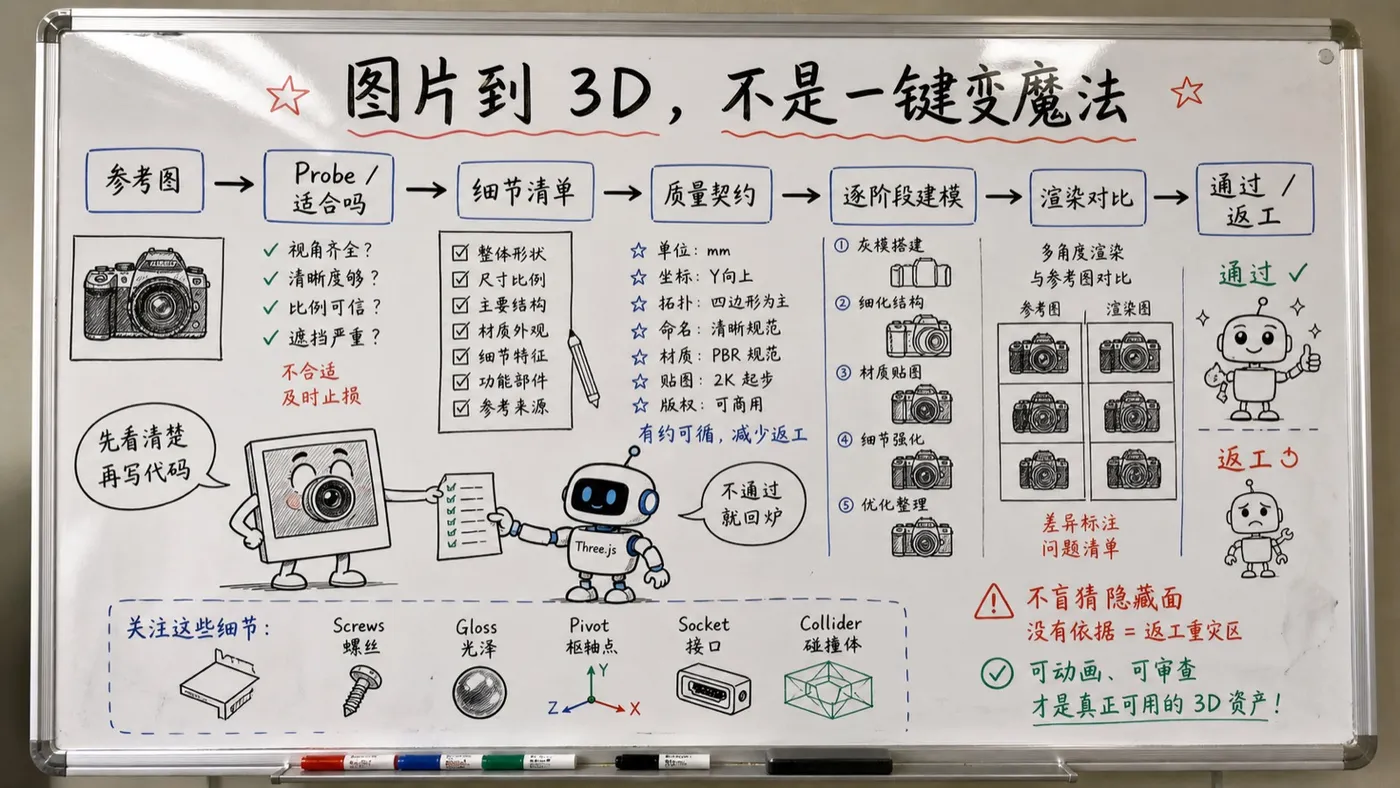 图片到 3D，不是一键变魔法
参考图
Probe /
适合吗
细节清单
质量契约
逐阶段建模
渲染对比
通过 /
返工
✓ 视角齐全？
✓ 清晰度够？
✓ 比例可信？
✓ 遮挡严重？
不合适
及时止损
☑ 整体形状
☑ 尺寸比例
☑ 主要结构
☑ 材质外观
☑ 细节特征
☑ 功能部件
☑ 参考来源
☆ 单位：mm
☆ 坐标：Y向上
☆ 拓扑：四边形为主
☆ 命名：清晰规范
☆ 材质：PBR 规范
☆ 贴图：2K 起步
☆ 版权：可商用
有约可循，减少返工
① 灰模搭建
② 细化结构
③ 材质贴图
④ 细节强化
⑤ 优化整理
多角度渲染
与参考图对比
参考图
渲染图
差异标注
问题清单
通过 ✓
返工
先看清楚
再写代码
Three.js
不通过
就回炉
关注这些细节：
Screws
螺丝
Gloss
光泽
Pivot
枢轴点
Y
Z
X
Socket
接口
Collider
碰撞体
不盲猜隐藏面
没有依据 = 返工重灾区
可动画、可审查
才是真正可用的 3D 资产！